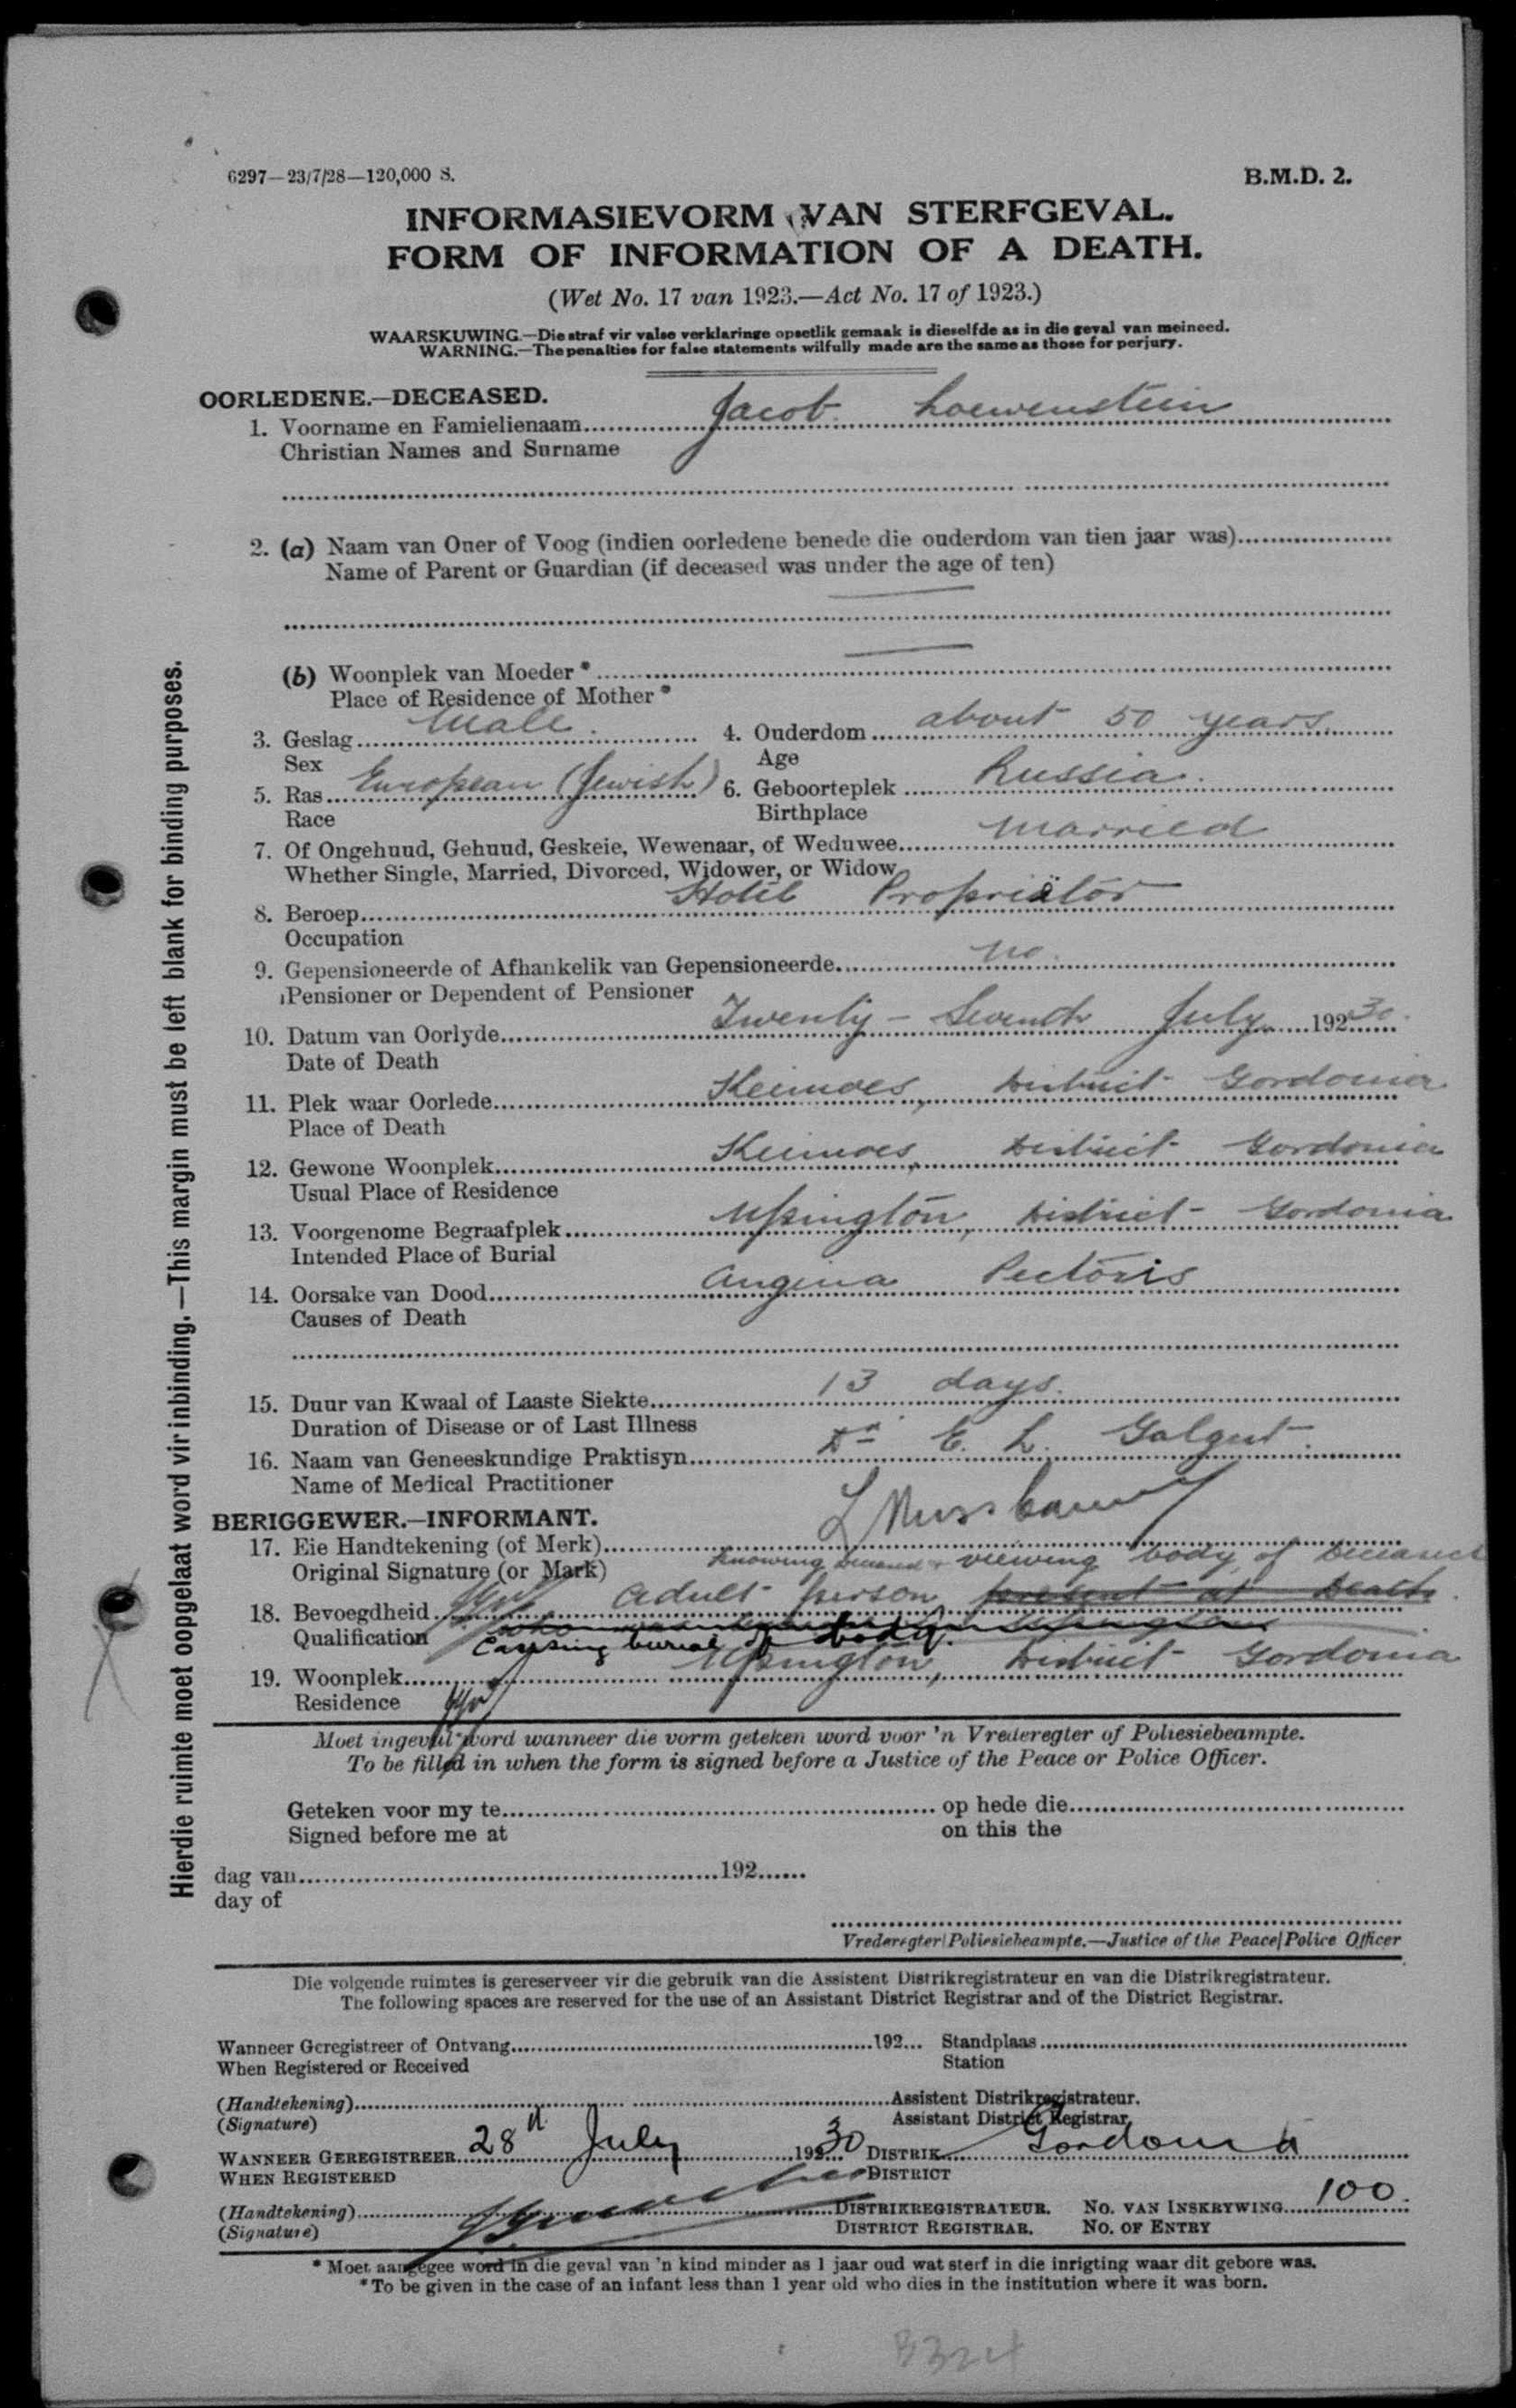 6297—23/7/28—120,000 S. B.M.D. 2.
INFORMASIEVORM VAN STERFGEVAL.
FORM OF INFORMATION OF A DEATH.
(Wet No. 17 van 1923.—Act No. 17 of 1923.)
WAARSKUWING.—Die straf vir valse verklaringe opsetlik gemaak is dieselfde as in die geval van meineed.
WARNING.—The penalties for false statements wilfully made are the same as those for perjury.
OORLEDENE.—DECEASED.
1. Voorname en Famielienaam Jacob Loewenstein
Christian Names and Surname
2. (a) Naam van Ouer of Voog (indien oorledene benede die ouderdom van tien jaar was)
Name of Parent or Guardian (if deceased was under the age of ten)
(b) Woonplek van Moeder *
Place of Residence of Mother *
3. Geslag Male. 4. Ouderdom about 50 years
Sex Age
5. Ras European (Jewish) 6. Geboorteplek Russia.
Race Birthplace
7. Of Ongehuud, Gehuud, Geskeie, Wewenaar, of Weduwee married
Whether Single, Married, Divorced, Widower, or Widow
8. Beroep Hotel Proprietor
Occupation
9. Gepensioneerde of Afhankelik van Gepensioneerde no.
Pensioner or Dependent of Pensioner
10. Datum van Oorlyde Twenty-Seventh July 192 30.
Date of Death
11. Plek waar Oorlede Keimoes, District Gordonia
Place of Death
12. Gewone Woonplek Keimoes, District Gordonia
Usual Place of Residence
13. Voorgenome Begraafplek Upington, District Gordonia
Intended Place of Burial
14. Oorsake van Dood Angina Pectoris
Causes of Death
15. Duur van Kwaal of Laaste Siekte 13 days.
Duration of Disease or of Last Illness
16. Naam van Geneeskundige Praktisyn Dr E. L. Galgut.
Name of Medical Practitioner
BERIGGEWER.—INFORMANT.
17. Eie Handtekening (of Merk) L Nussbaum
Original Signature (or Mark) knowing deceased & viewing body of deceased
18. Bevoegdheid Adult person present at death
Qualification causing burial of body.
19. Woonplek Upington, District Gordonia
Residence
Moet ingevul word wanneer die vorm geteken word voor 'n Vrederegter of Poliesiebeampte.
To be filled in when the form is signed before a Justice of the Peace or Police Officer.
Geteken voor my te op hede die
Signed before me at on this the
dag van 192
day of
Vrederegter/Poliesiebeampte.—Justice of the Peace/Police Officer
Die volgende ruimtes is gereserveer vir die gebruik van die Assistent Distrikregistrateur en van die Distrikregistrateur.
The following spaces are reserved for the use of an Assistant District Registrar and of the District Registrar.
Wanneer Geregistreer of Ontvang 192 Standplaas
When Registered or Received Station
(Handtekening) Assistent Distrikregistrateur.
(Signature) Assistant District Registrar.
WANNEER GEREGISTREER 28th July 1930 DISTRIK Gordonia
WHEN REGISTERED DISTRICT
(Handtekening) DISTRIKREGISTRATEUR. NO. VAN INSKRYWING 100.
(Signature) DISTRICT REGISTRAR. NO. OF ENTRY
* Moet aangegee word in die geval van 'n kind minder as 1 jaar oud wat sterf in die inrigting waar dit gebore was.
* To be given in the case of an infant less than 1 year old who dies in the institution where it was born.
Hierdie ruimte moet oopgelaat word vir inbinding.—This margin must be left blank for binding purposes.